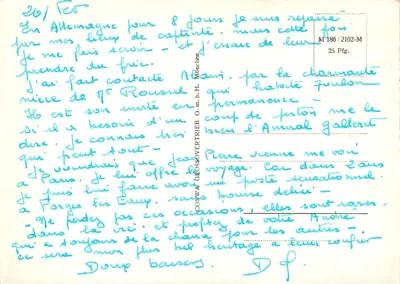 26/
En Allemagne pour 8 jours je suis repassé
par mes lieux de captivité. mais cette fois
je me fais servir - et j'essaie de leur
prendre du fric.
J'ai fait contacter Albani. par la charmante
nièce de Mr Roussel qui habite Toulon
Il est son invité en permanence -
si il a besoin d'un coup de piston me le
dire. je connais très bien l'Amiral
qui peut tout -
Je voudrais que Jean Pierre vienne me voir
à Paris. je lui offre le voyage. Car dans 2 ans
je puis lui faire avoir un poste sensationnel.
à Forges les Eaux. sans bourse délier -
Ne perdez pas ces occasions, elles sont rares.
dans la vie. et profitez de votre André
qui a toujours de la chance pour les autres -
ce sera mon plus bel héritage à leur
Doux baisers
M 186 / 2102-M
25 Pfg.
GROSSOVERTRIEB G.m.b.H. München